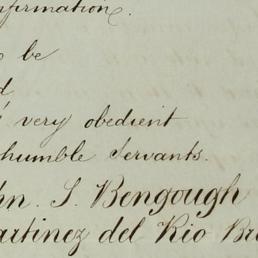 nfirmation.
be
very obedient
humble Servants.
hn. S. Bengough
artinez del Rio Br